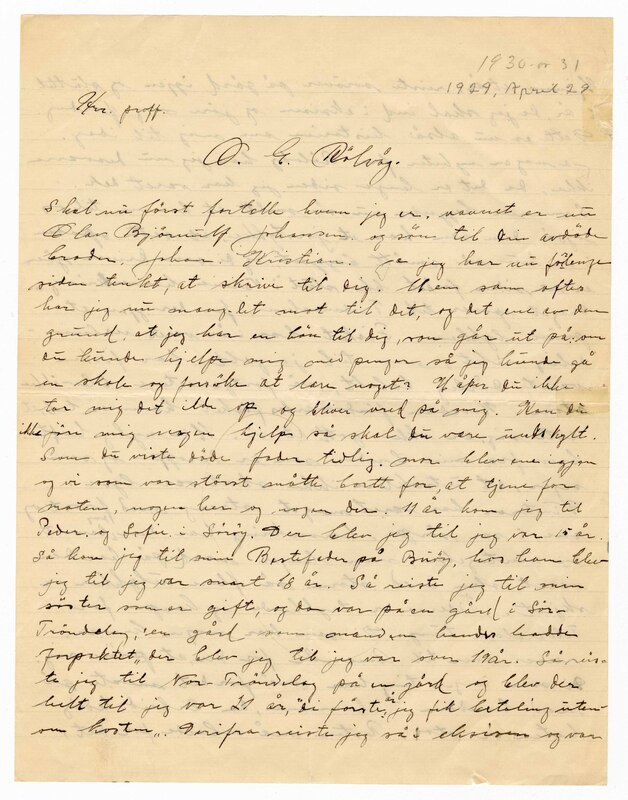 1930 or 31
1929, April 29
Hrr. proff.
O. E. Rölvåg.
Skal nu först fortelle hvem jeg er. navnet er nu
Olav Björnulf Johansen. og sön til Din avdöde
broder. Johan. Kristian. Ja jeg har nu forlenge
siden tenkt, at skrive til dig. Men som oftes
har jeg nu mang-let mot til det, og det ene av den
grund, at jeg har en bön til dig, som går ut på, om
du kunde hjelpe mig med penger så jeg kunde gå
en skole og forsöke at lære noget? Håper du ikke
tar mig det ilde op og bliver vred på mig. Kan du
ikke göre mig nogen hjelp så skal du være undskylt.
Som du viste döde fader tidlig. mor blev ene igjen
og vi som var störst måtte bortt for, at tjene for
maten, nogen her og nogen der. 11 år kom jeg til
Peder, og Sofie i Söröy. Der blev jeg til jeg var 15 år.
Så kom jeg til min Bestefeder på Buöy, hos ham blev
jeg til jeg var snart 18 år. Så reiste jeg til min
söster som er gift, og da var på en gård i Sör-
Tröndelag, en gård som manden hendes hadde
forpaktet„ der blev jeg til jeg var over 19 år. Så reis-
te jeg til Nor-Tröndelag på en gård og blev der
helt til jeg var 21 år, "di förste år jeg fik betaling uten
om kosten„. Derifra reiste jeg så i eksisen og var